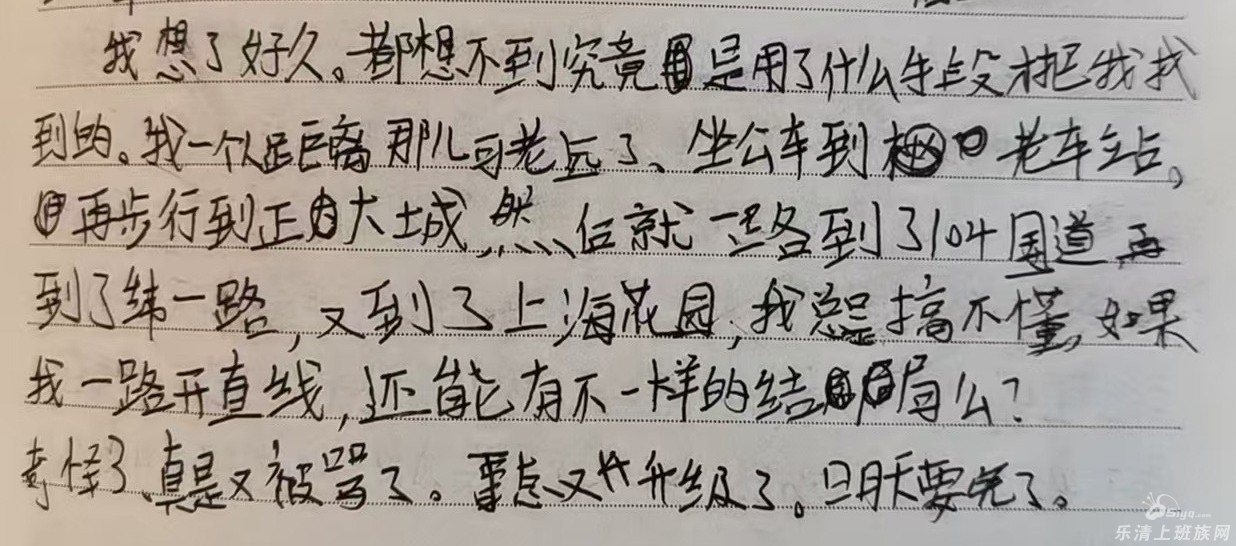 我想了好久。都想不到究竟是用了什么手段才把我找
到的。我一个人距离那儿可老远了、坐公车到老车站。
再步行到正大城,然后就一路到了104国道再
到了纬一路,又到了上海花园,我总是搞不懂,如果
我一路开直线,还能有不一样的结局么?
奇怪了、真是又被骂了。又升级了。明天要完了。
乐清上班族网